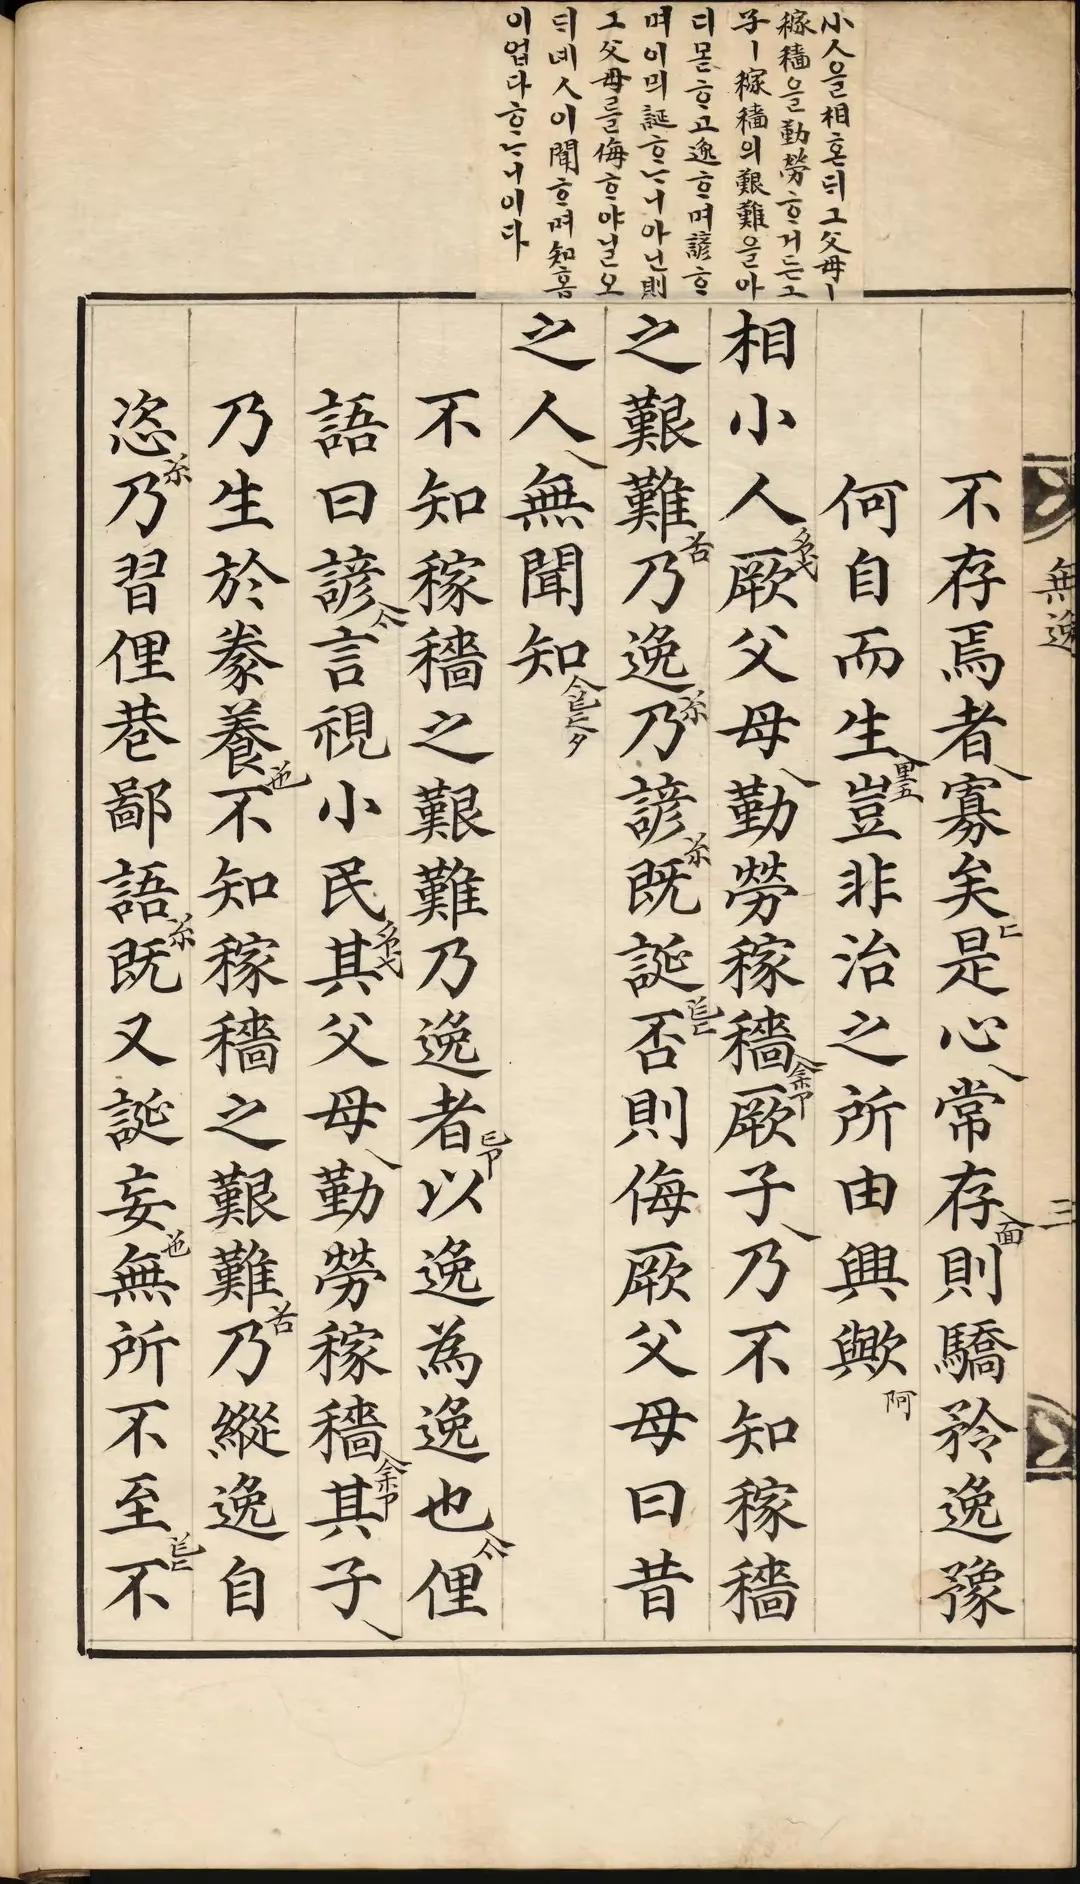 小人을相혼듸그父母ㅣ
稼穡을勤勞ᄒᆞ거든그
子ㅣ稼穡의艱難을아
디몯ᄒᆞ고逸ᄒᆞ며諺ᄒᆞ
며이믜誕ᄒᆞᄂᆞ니아닌則
그父母를侮ᄒᆞ야닐오
듸녜人이聞ᄒᆞ며知홈
이업다ᄒᆞᄂᆞ니이다
無逸
三
不存焉者寡矣是心常存則驕矜逸豫
何自而生豈非治之所由興歟
相小人厥父母勤勞稼穡厥子乃不知稼穡
之艱難乃逸乃諺既誕否則侮厥父母曰昔
之人無聞知
不知稼穡之艱難乃逸者以逸為逸也俚
語曰諺言視小民其父母勤勞稼穡其子
乃生於豢養不知稼穡之艱難乃縱逸自
恣乃習俚巷鄙語既又誕妄無所不至不